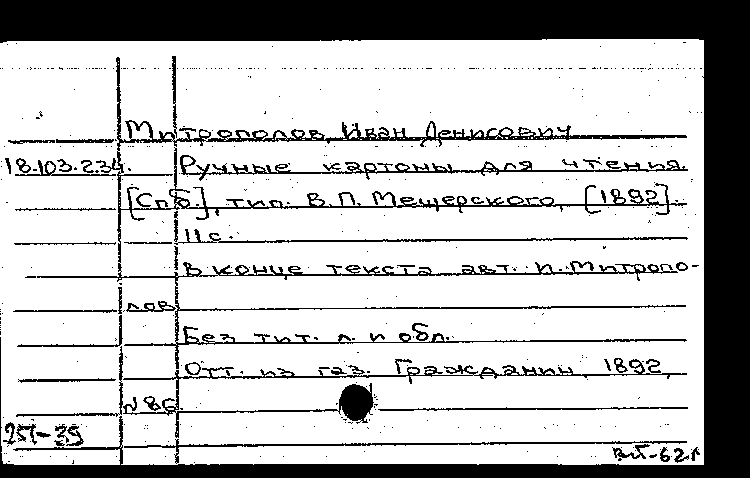 Митрополов, Иван Денисович
18.103.234. Ручные картоны для чтения.
[Спб.], тип. В.П. Мещерского, [1892].
11 с.
В конце текста авт. И. Митропо-
лов
Без тит. л. и обл.
Отт. из газ. Гражданин, 1892,
№ 86
257-39